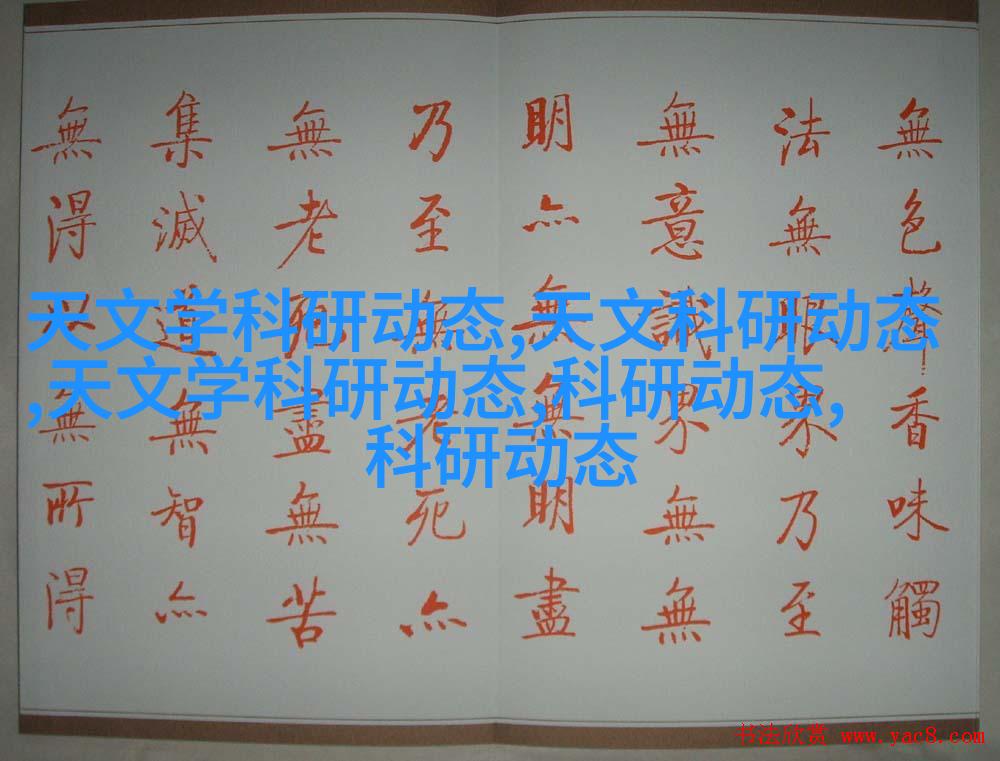 無色聲香味觸
法無眼界乃至
無意識界無無
明亦無無明盡
乃至無老死亦
無老死盡無苦
集滅道無智亦
無得以無所得
天文学科研动态,天文科研动态
,天文学科研动态,科研动态,
科研动态
书法欣赏 www.yac8.com